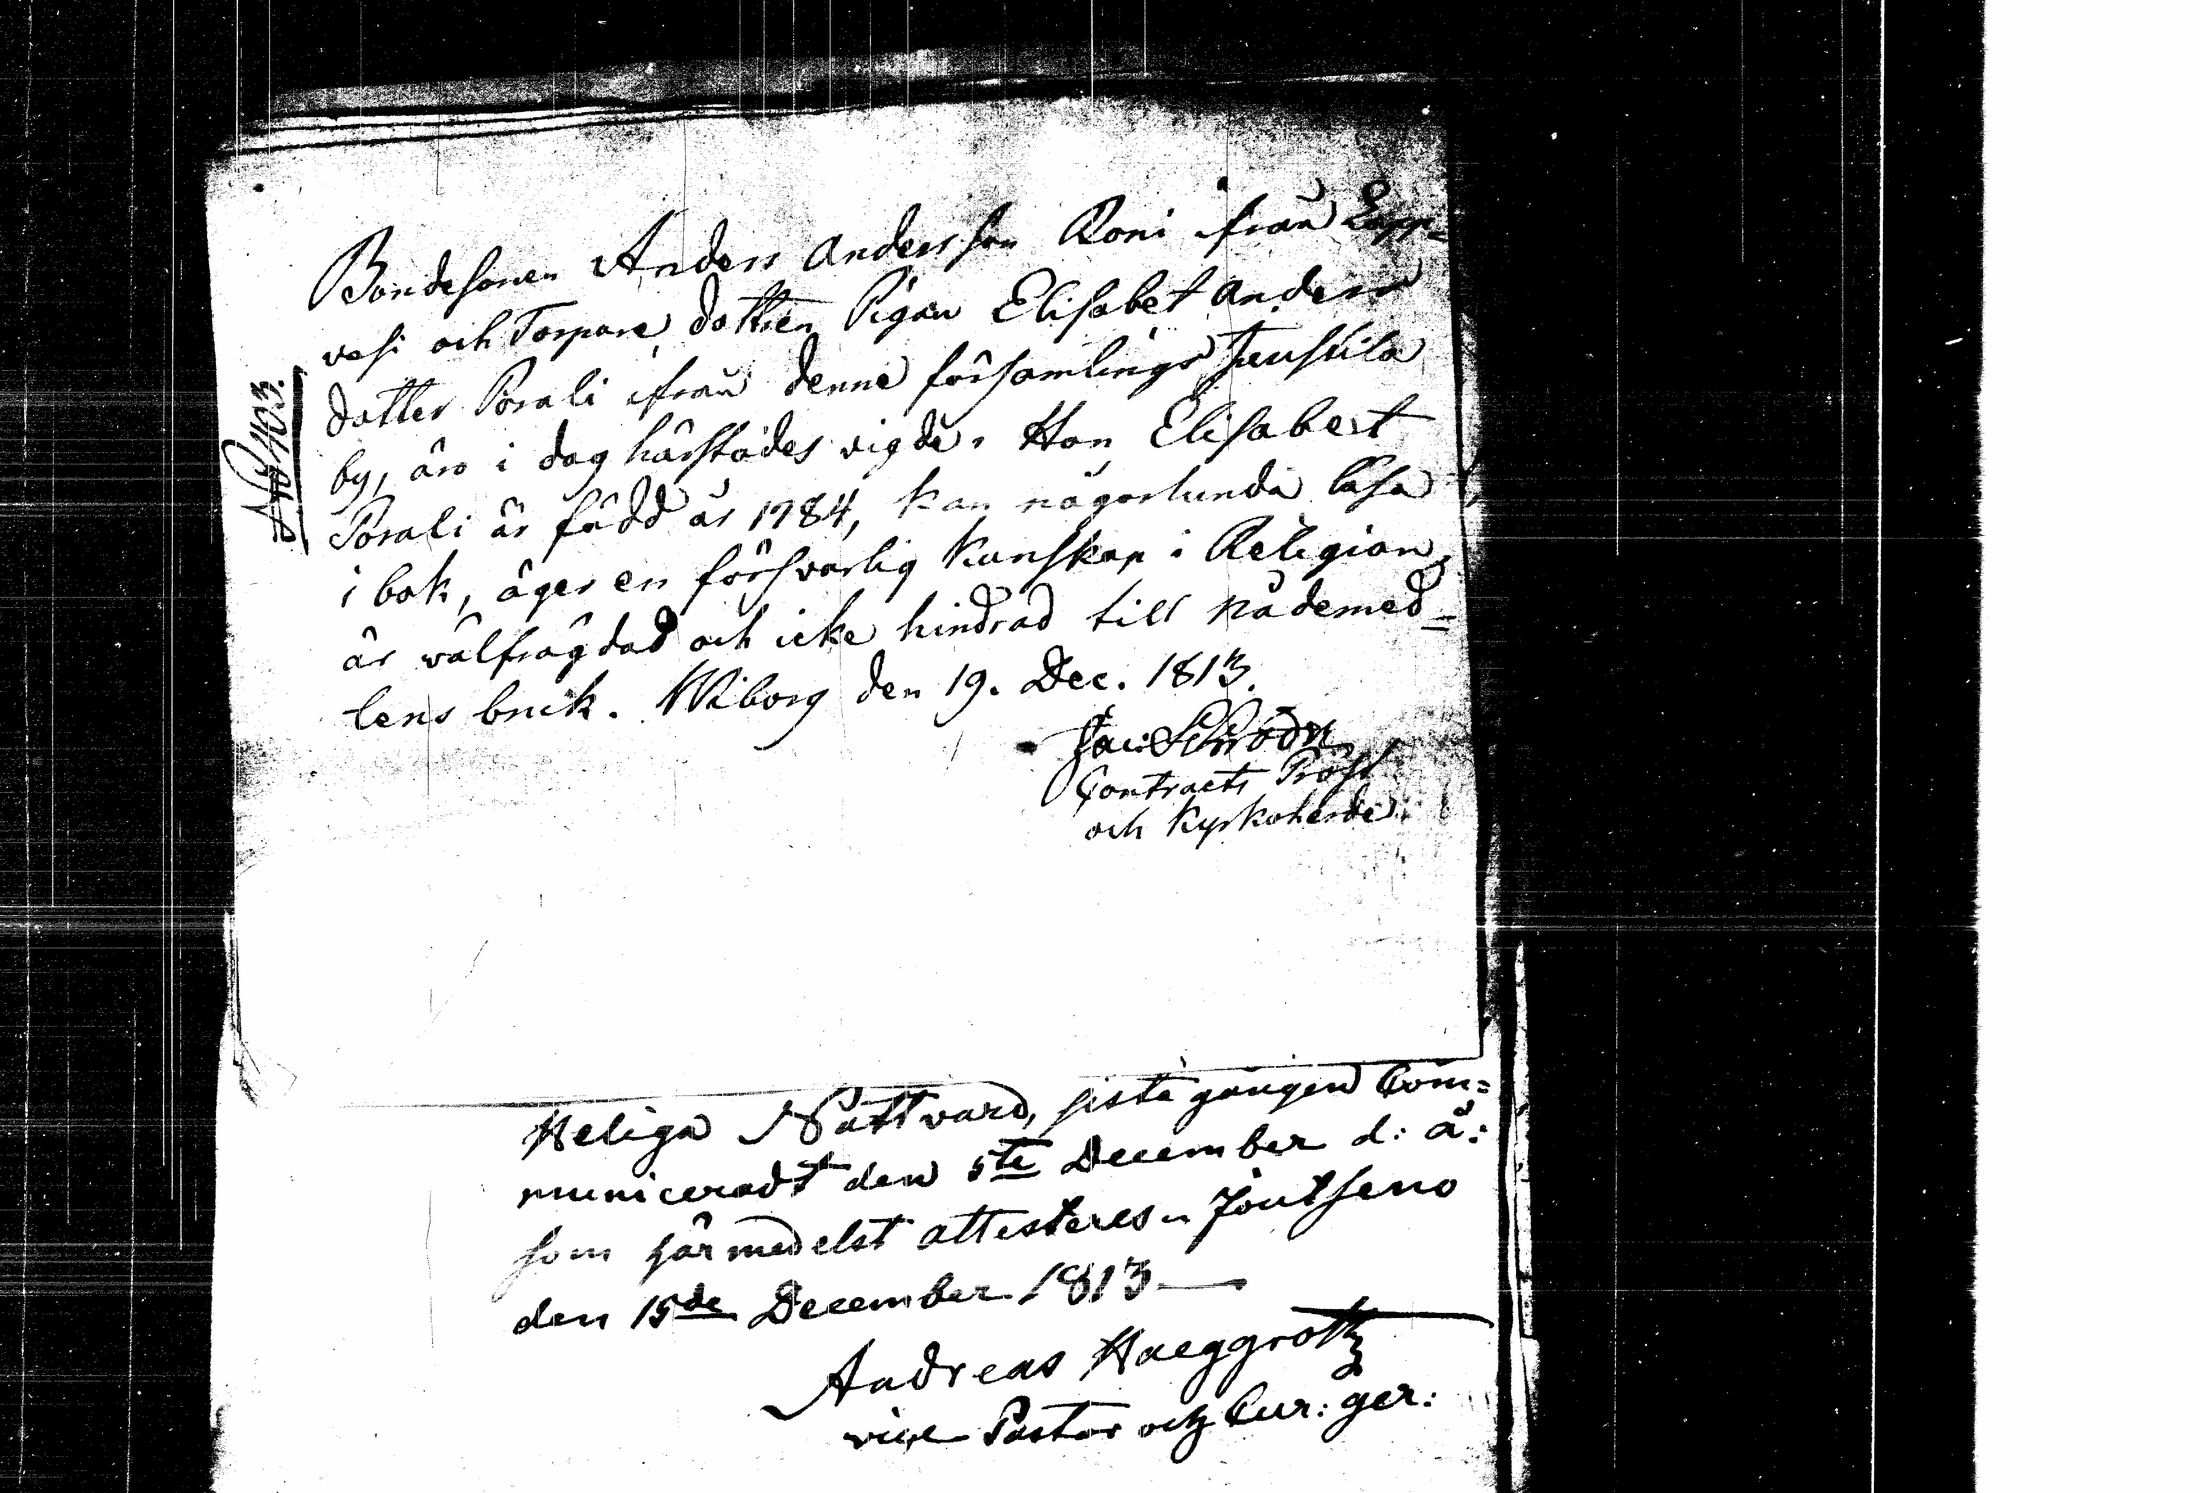 Nro 403.
Bondesonen Anders Andersson Roni ifrån Lapp=
vesi och Torpare dottren Pigan Elisabet Anders
dotter Pörali ifrån denne församlings Juustila
by, äro i dag härstädes vigde. Hon Elisabet
Pörali är född år 1784, kan någorlunda läsa
i bok, äger en försvarlig kunskap i Religion,
är välfrägdad och icke hindrad till nådemed=
lens bruk. Wiborg den 19. Dec. 1813.
Contracts Pröst
och Kyrkoherde.
Heliga Nattvard, sista gången Com=
municeradt den 5te December d: å:
som härmedelst attesteres. Joutseno
den 15de December 1813
Andreas Haeggroth
vice Pastor och Cur: ger: